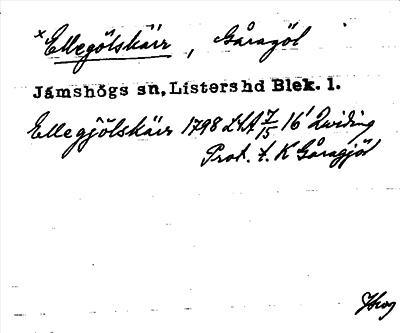 × Ellegölskärr, Gåragöl
Jämshögs sn, Listers hd Blek. l.
Ellegjölskärr 1798 LSA 7/15 16' Qviding
Prot. t. K Gåragjöl